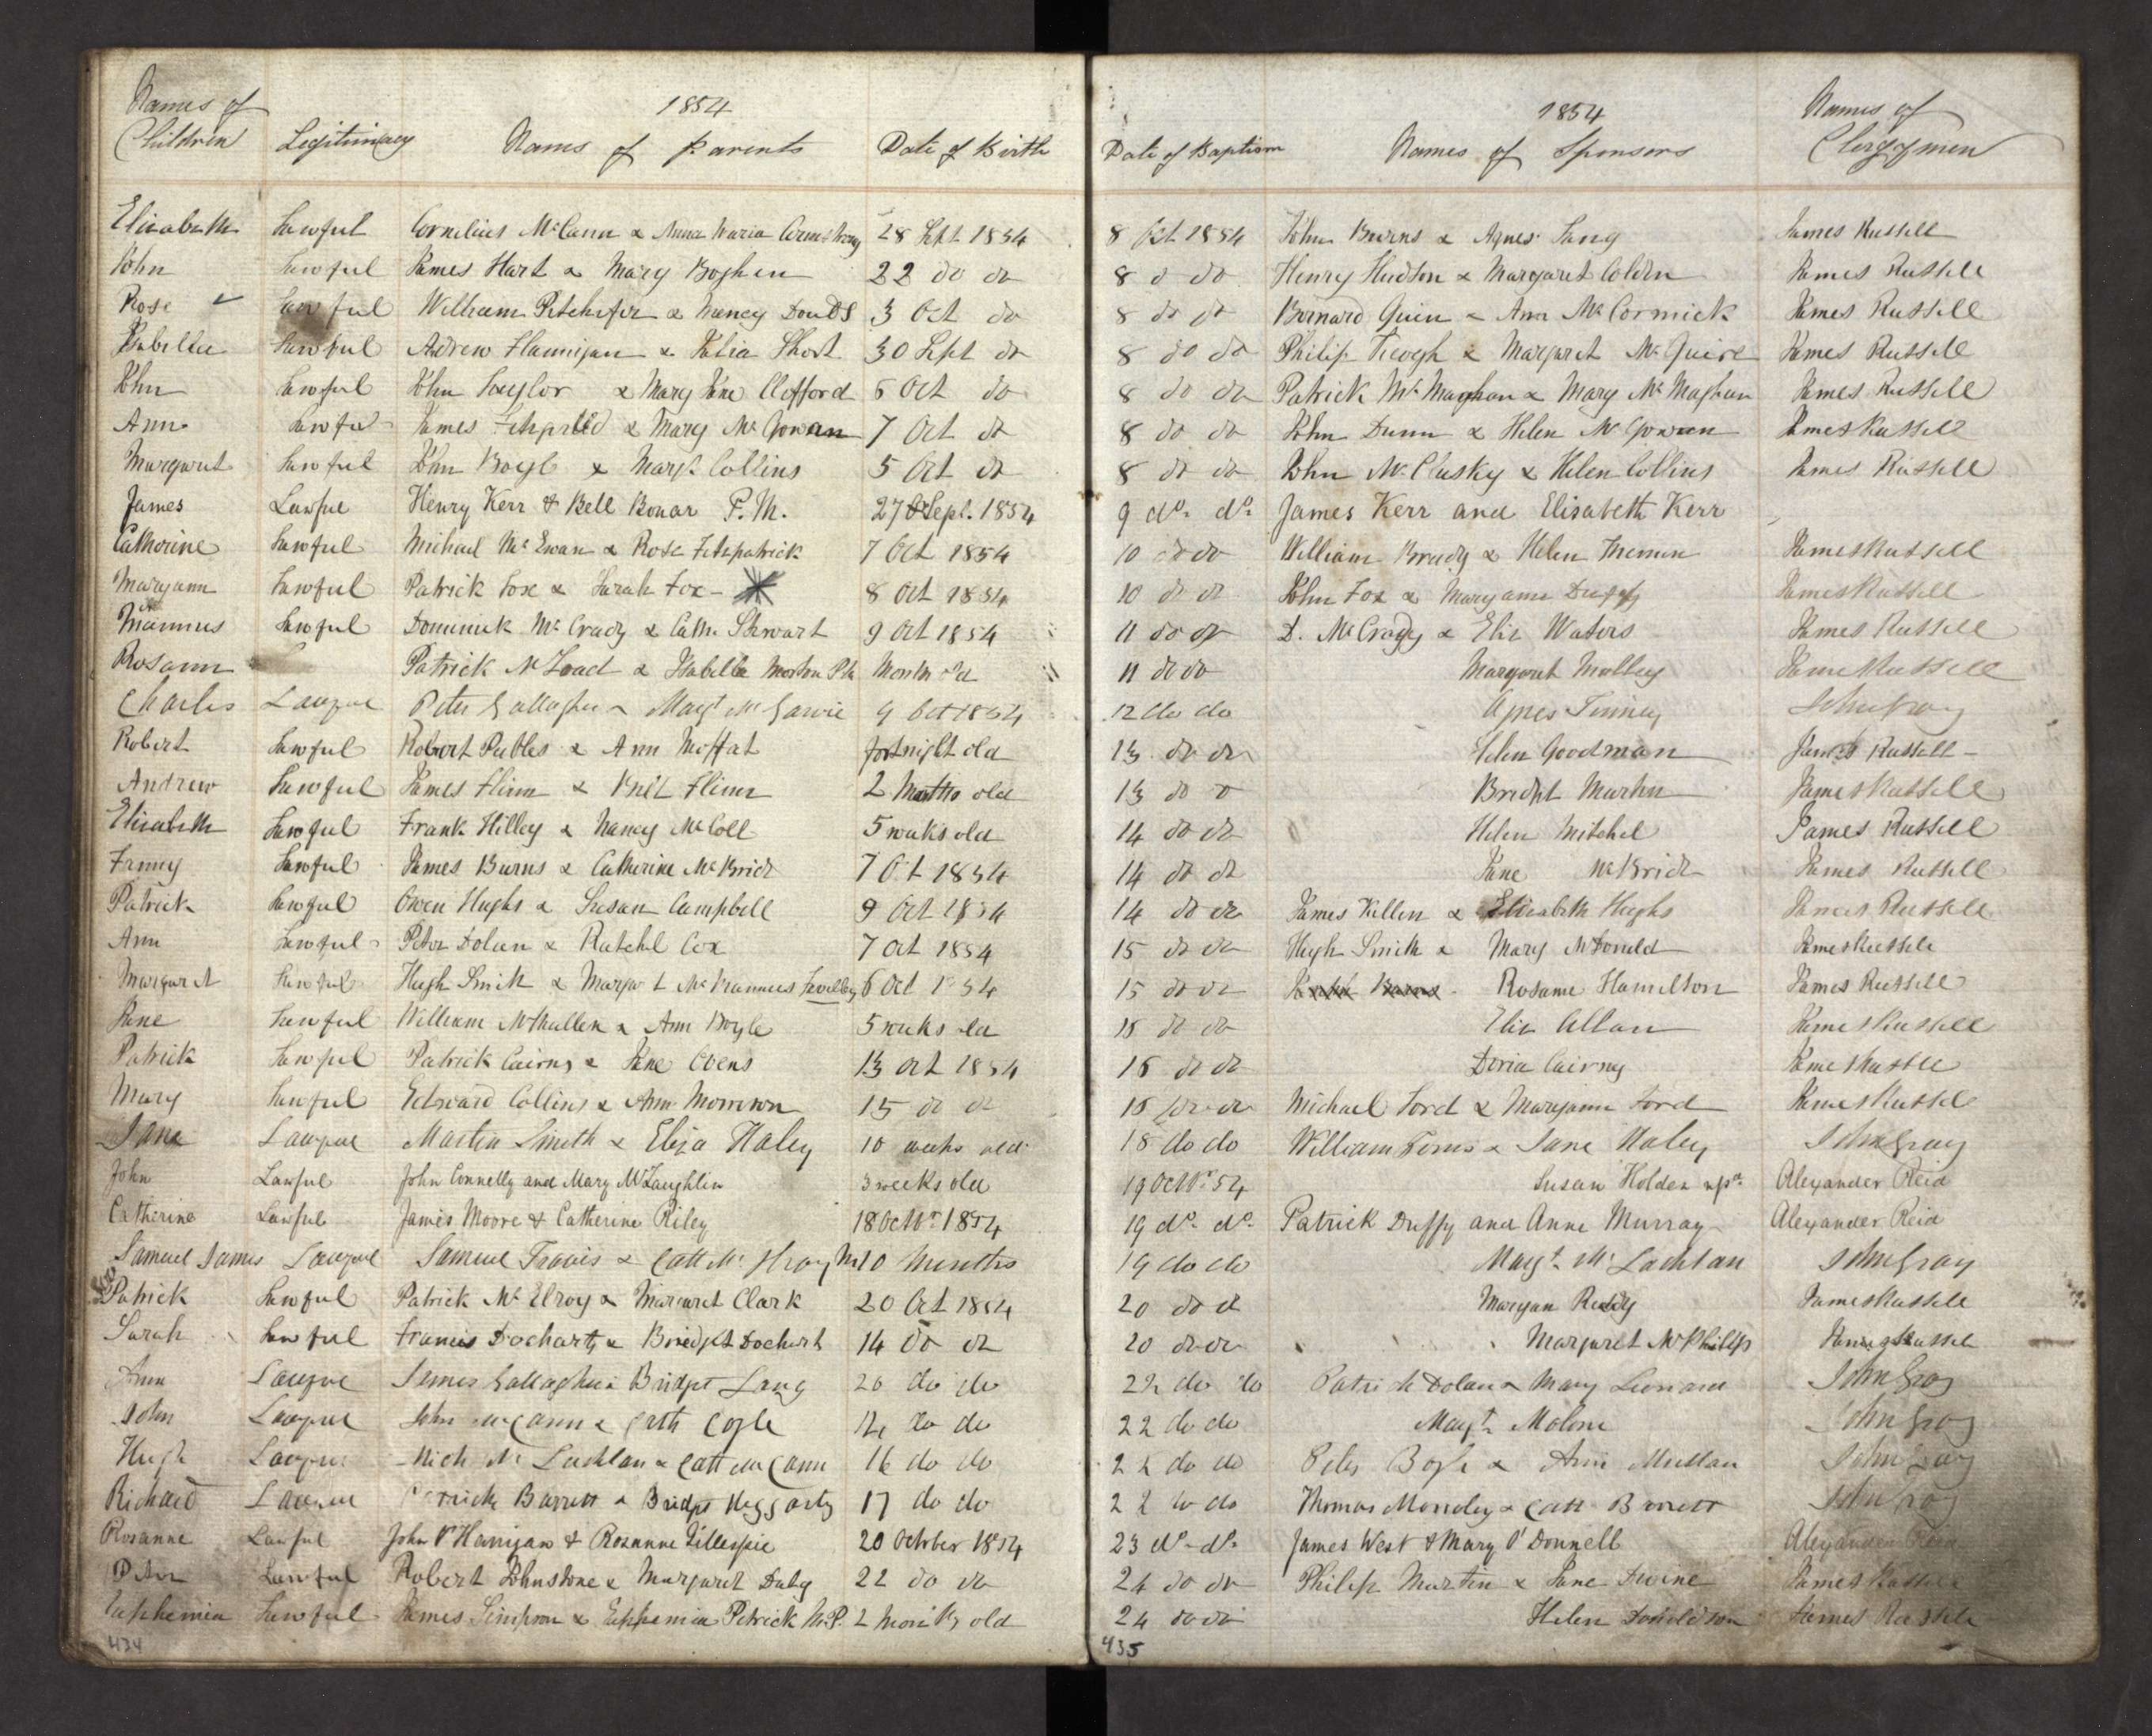 Names of Children Legitimacy 1854 Names of Parents Date of Birth Date of Baptism 1854 Names of Sponsors Names of Clergymen
Elisabeth Lawful Cornelius McCann & Anna Maria Armstrong 28 Sept 1854 8 Oct 1854 John Burns & Agnes Lang James Russell
John Lawful James Hart & Mary Boghen 22 do do 8 do do Henry Hudson & Margaret Colden James Russell
Rose Lawful William & Nancy DoudS 3 Oct do 8 do do Bernard Quin & Ann McCormick James Russell
Isabella Lawful Adrew Flannigan & Julia Short 30 Sept do 8 do do Philip & Margaret McGuire James Russell
John Lawful John Taylor & Mary Jane Clifford 6 Oct do 8 do do Patrick McMaghan & Mary McMaghan James Russell
Ann Lawful James & Mary McGowan 7 Oct do 8 do do John Dunn & Helen McGowan James Russell
Margaret Lawful John Boyle & Margt Collins 5 Oct do 8 do do John McClusky & Helen Collins James Russell
James Lawful Henry Kerr & Bell Bonar P.M. 27 Sept. 1854 9 do. do. James Kerr and Elisabeth Kerr
Catherine Lawful Michael McEwan & Rose Fitspatrick 7 Oct 1854 10 do do William Brady & Helen James Russell
Maryann Lawful Patrick Fox & Sarah Fox - 8 Oct 1854 10 do do John Fox & Maryann Duffy James Russell
Mannus Lawful Dominick McCrady & Cathe Stewart 9 Oct 1854 11 do do D. McCrady & Eliz Waters James Russell
Rosann Patrick & Isabella Morton Month old 11 do do Margaret Molley James Russell
Charles Lawful Peter Gallagher & Margt McGarvie 9 Oct 1854 12 do do Agnes Finney John Gray
Robert Lawful Robert Peebles & Ann Moffat fortnight old 13 do do Helen Goodman James Russell -
Andrew Lawful James Flinn & Brit Flinn 2 Months old 13 do do Bridget Martin James Russell
Elisabeth Lawful Frank Hilley & Nancy McColl 5 weeks old 14 do do Helen Mitchel James Russell
Fanny Lawful James Burns & Catherine McBride 7 Oct 1854 14 do do Jane McBride James Russell
Patrick Lawful Owen Hughs & Susan Campbell 9 Oct 1854 14 do do James Killen & Elisabeth Hughs James Russell
Ann Lawful Peter Dolan & Ratchel Cox 7 Oct 1854 15 do do Hugh Smith & Mary McDonald James Russell
Margaret Lawful Hugh Smith & Margart 6 Oct 1854 15 do do Rosanne Hamilton James Russell
Jane Lawful William McMullen & Ann Boyle 5 weeks old 15 do do Eliz Allan James Russell
Patrick Lawful Patrick Cairns & Jane Ovens 13 Oct 1854 15 do do Doria Cairney James Russell
Mary Lawful Edward Collins & Ann Morrown 15 do do 15 do do Michael Ford & Maryann Ford James Russell
Jane Lawful Martin Smith & Eliza Haley 10 weeks old 18 do do William & Jane Haley John Gray
John Lawful John Connelly and Mary McLaughlin 3 weeks old 19 Octbr. 54 Susan Holden Alexander Reid
Catherine Lawful James Moore & Catherine Riley 18 Octbr. 1854 19 do. do. Patrick Duffy and Anne Murray Alexander Reid
Samuel James Lawful Samuel Travis & Cath 10 Months 19 do do Margt. McLachlan John Gray
Patrick Lawful Patrick McElroy & Margaret Clark 20 Oct 1854 20 do do Maryan Reddy James Russell
Sarah Lawful Francis Docharty & Bridget Dochart 14 do do 20 do do Margaret McPhilips James Russell
Ann Lawful James Gallagher & Bridget Lang 20 do do 22 do do Patrick Dolan & Mary Leonard John Gray
John Lawful John McCann & Cath Coyle 14 do do 22 do do Margt. Malone John Gray
Hugh Lawful Mich McLachlan & Cath McCann 16 do do 22 do do Peter Boyle & Ann Mullan John Gray
Richard Lawful Patrick Barrett & Bridget Heggarty 17 do do 22 do do Thomas & Cath Barrett John Gray
Rosanne Lawful John O'Hanigan & Rosanne Gillespie 20 October 1854 23 do. do. James West & Mary O'Donnell Alexander Reid
Peter Lawful Robert Johnstone & Margaret Daly 22 do do 24 do do Philip Martin & Jane Divine James Russell
Euphemia Lawful James Simpson & Euphemia Petrick M.P. 2 Months old 24 do do Helen Donaldson James Russell
434 435